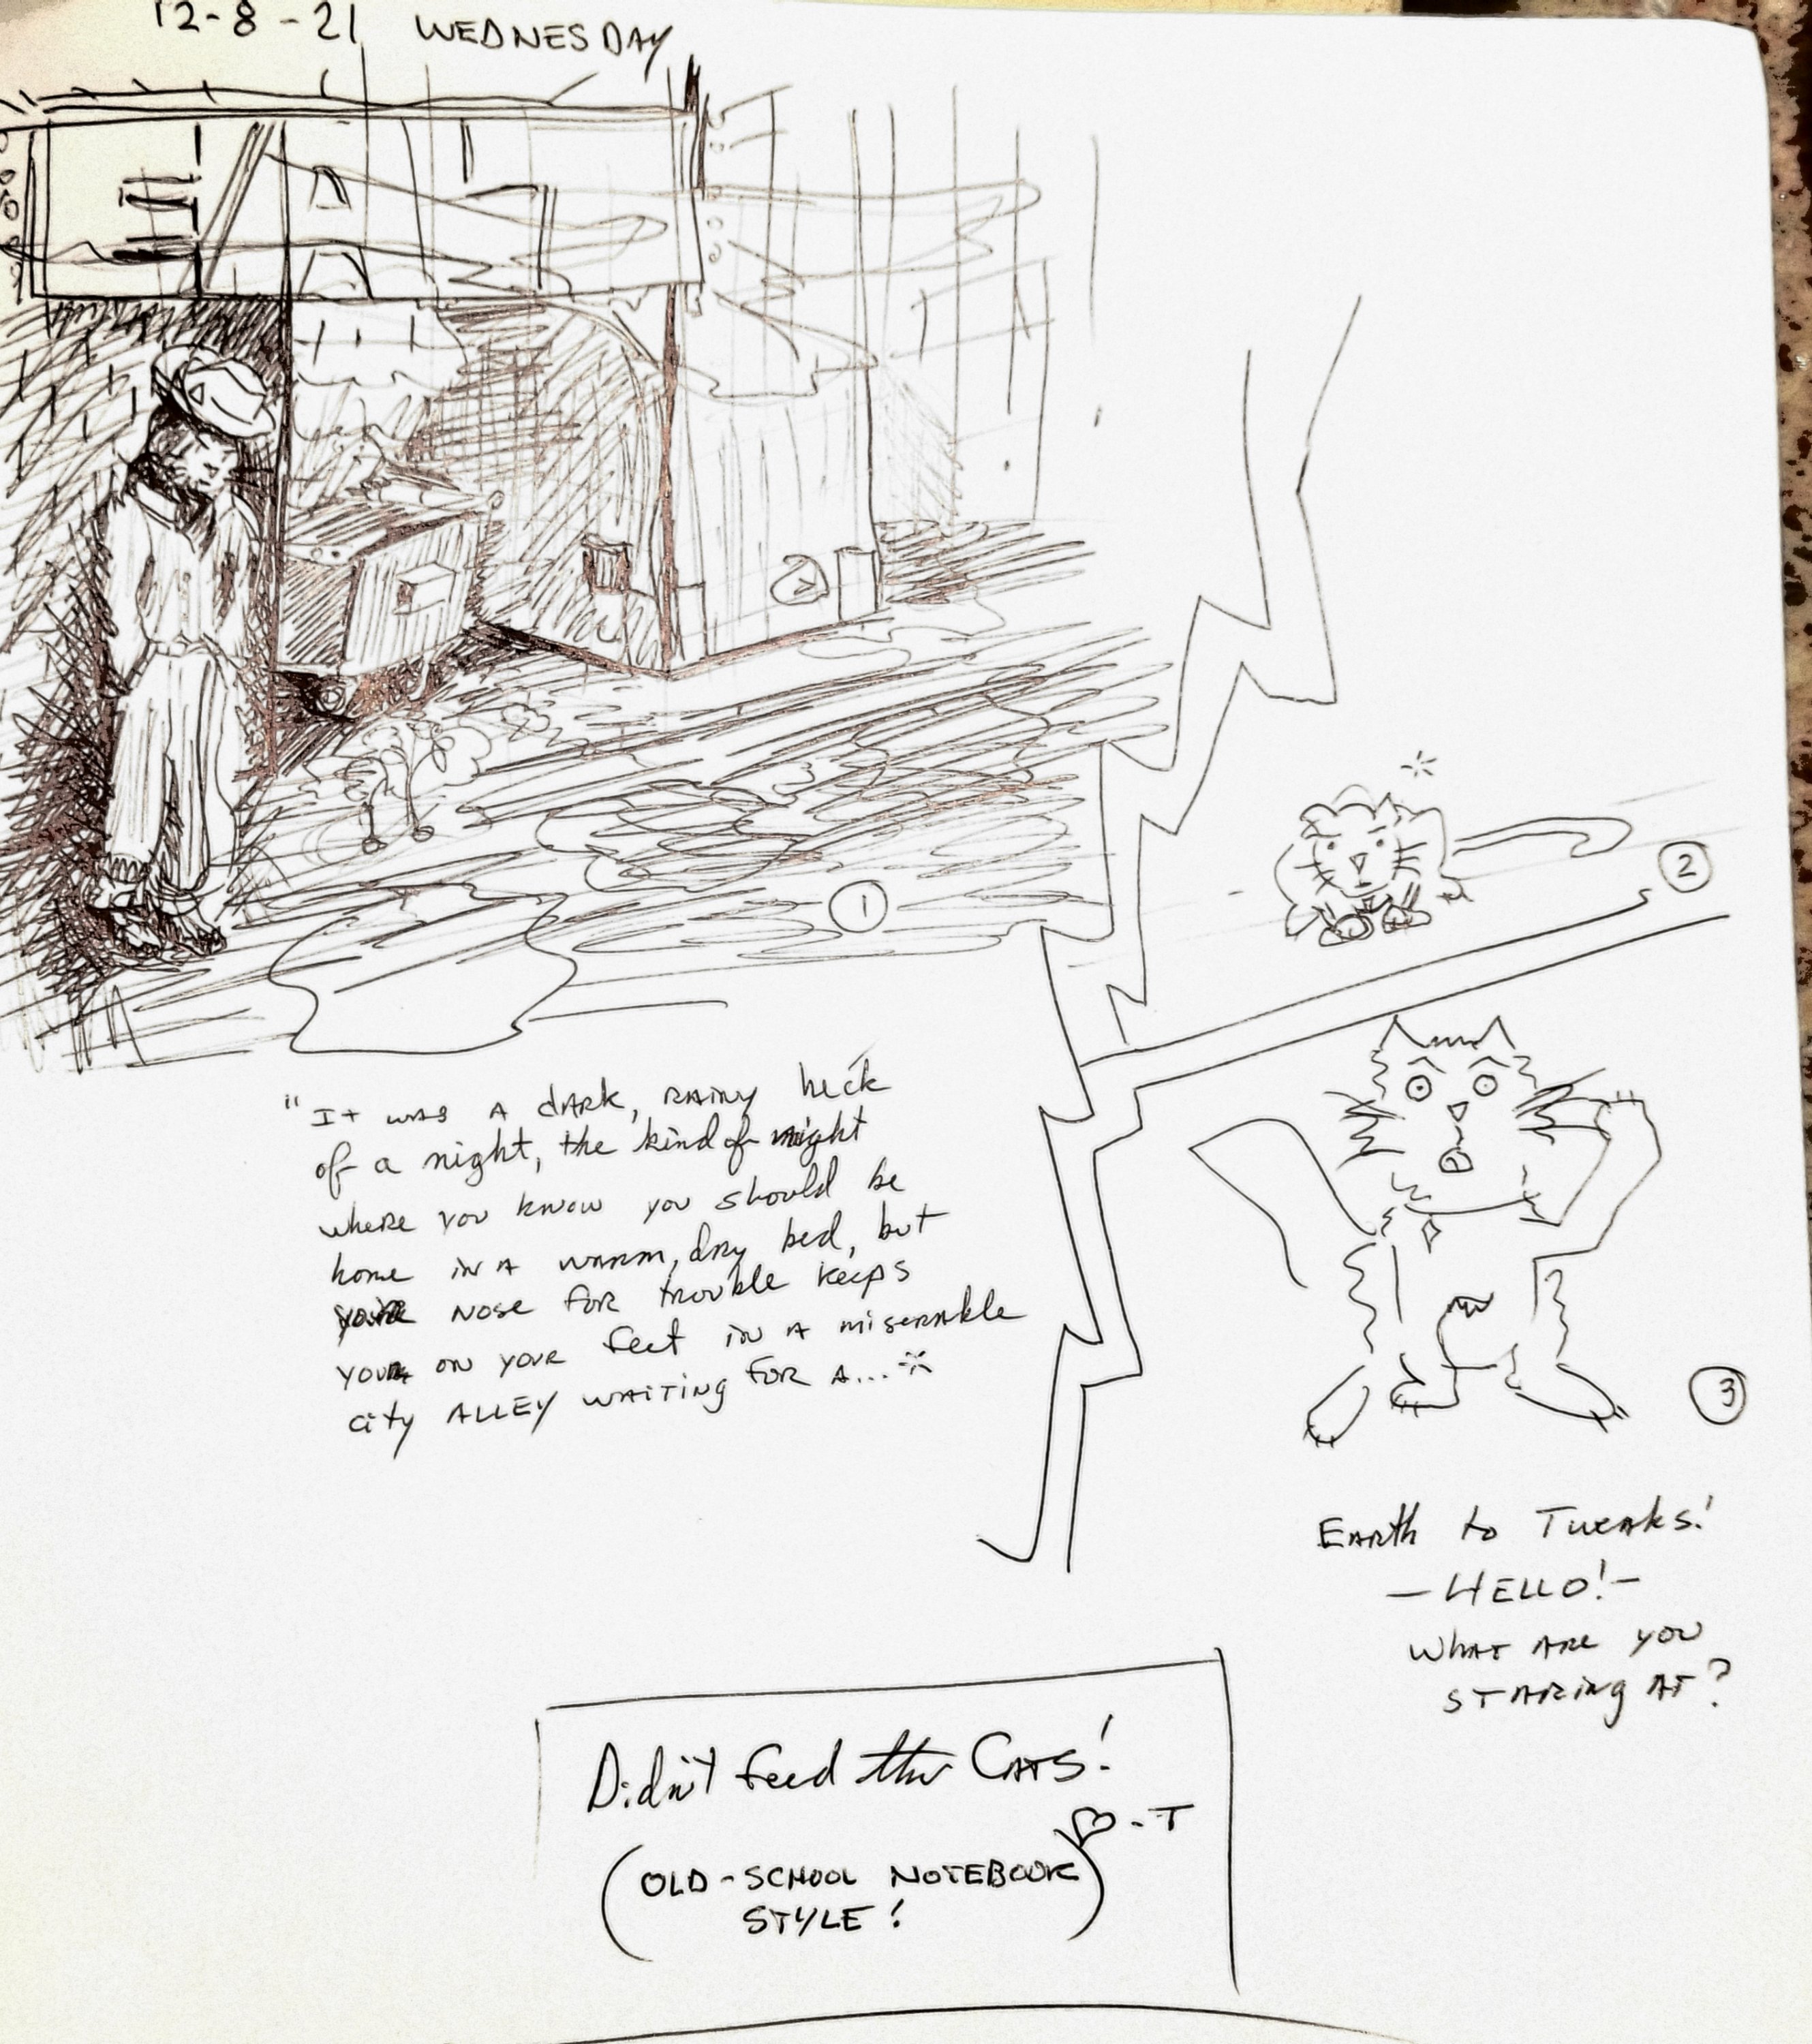 12-8-21 WEDNESDAY
1
"It was a dark, rainy heck
of a night, the kind of night
where you know you should be
home in a warm, dry bed, but
your nose for trouble keeps
you on your feet in a miserable
city alley waiting for a...
2
3
Earth to Tweaks!
- HELLO! -
What are you
staring at?
Didn't feed the Cats!
♡-T
(OLD-SCHOOL NOTEBOOK
STYLE!)